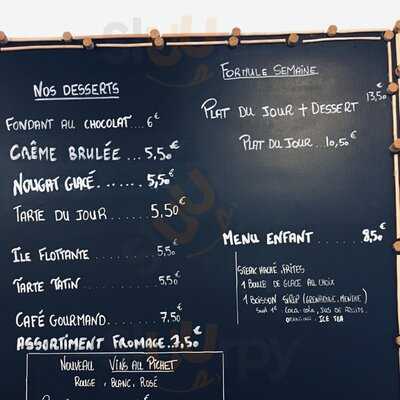 NOS DESSERTS
FONDANT AU CHOCOLAT...6€
CRÊME BRULÉE ...5,50€
NOUGAT GLACÉ.......5,50€
TARTE DU JOUR ......5,50€
ILE FLOTTANTE ......5,50€
TARTE TATIN .......5,50€
CAFÉ GOURMAND.....7,50€
ASSORTIMENT FROMAGE.7,50€
NOUVEAU VINS AU PICHET
ROUGE, BLANC, ROSÉ
FORMULE SEMAINE
PLAT DU JOUR + DESSERT 13,50€
PLAT DU JOUR...10,50€
MENU ENFANT .......8,50€
STEAK HACHÉ, FRITES
1 BOULE DE GLACE AU CHOIX
1 BOISSON SIROP (GRENADINE, MENTHE)
COCA-COLA, JUS DE FRUITS,
ORANGINA, ICE TEA